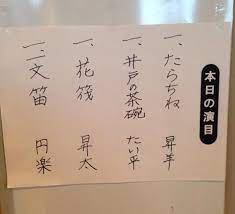 本日の演目
一、たらちね 昇羊
一、井戸の茶碗 たい平
一、花筏 昇太
一、二文笛 円楽